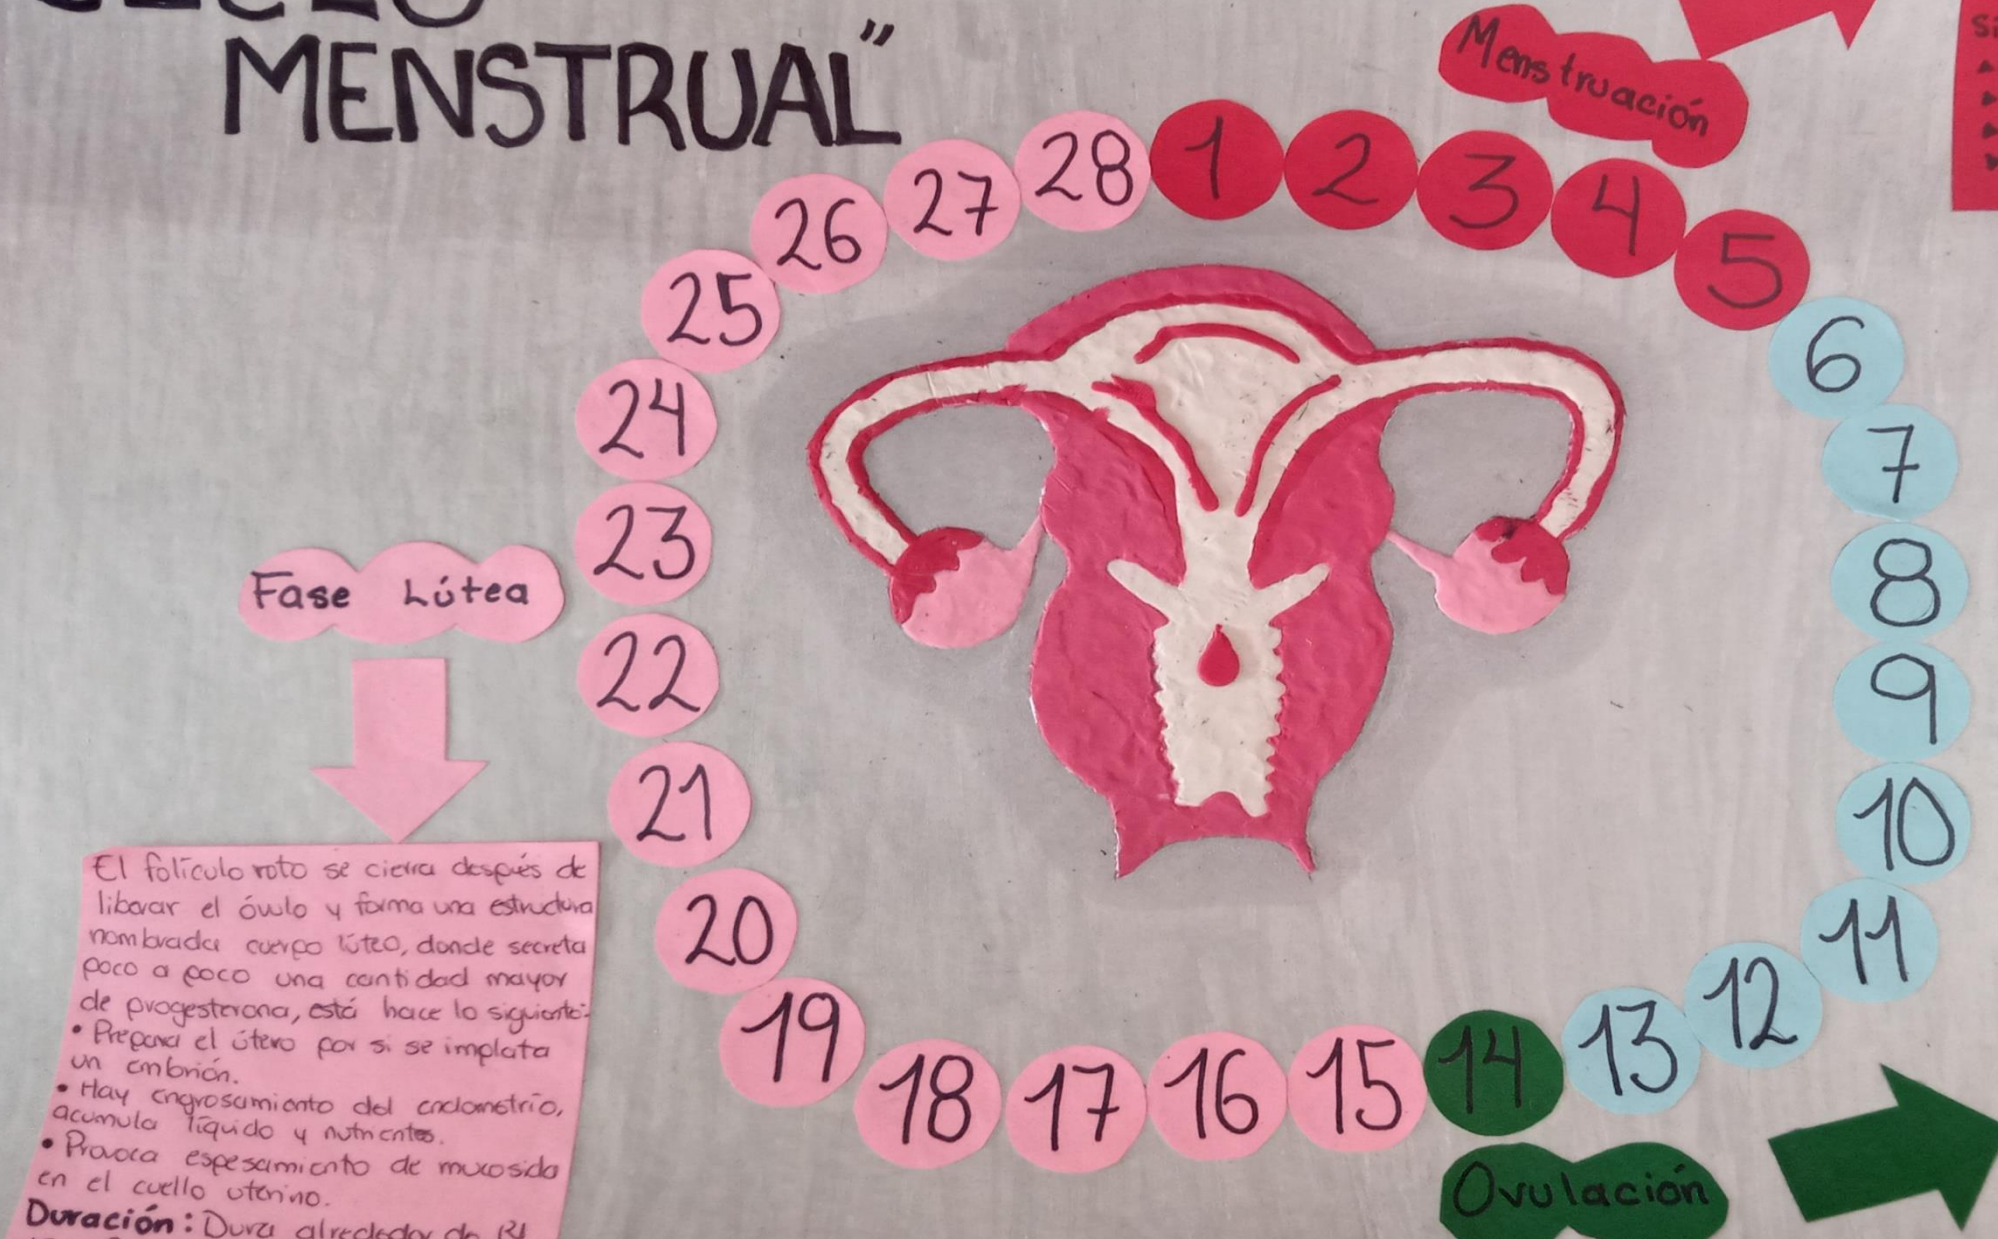 MENSTRUAL"
Menstruación
1
2
3
4
5
6
7
8
9
10
11
12
13
14
15
16
17
18
19
20
21
22
23
24
25
26
27
28
Ovulación
Fase Lútea
El folículo roto se cierra después de
liberar el óvulo y forma una estructura
nombrada cuerpo lúteo, donde secreta
poco a poco una cantidad mayor
de progesterona, está hace lo siguiente:
• Prepara el útero por si se implata
un embrión.
• Hay engrosamiento del endometrio,
acumula líquido y nutrientes.
• Provoca espesamiento de mucosida
en el cuello uterino.
Duración: Dura alrededor de